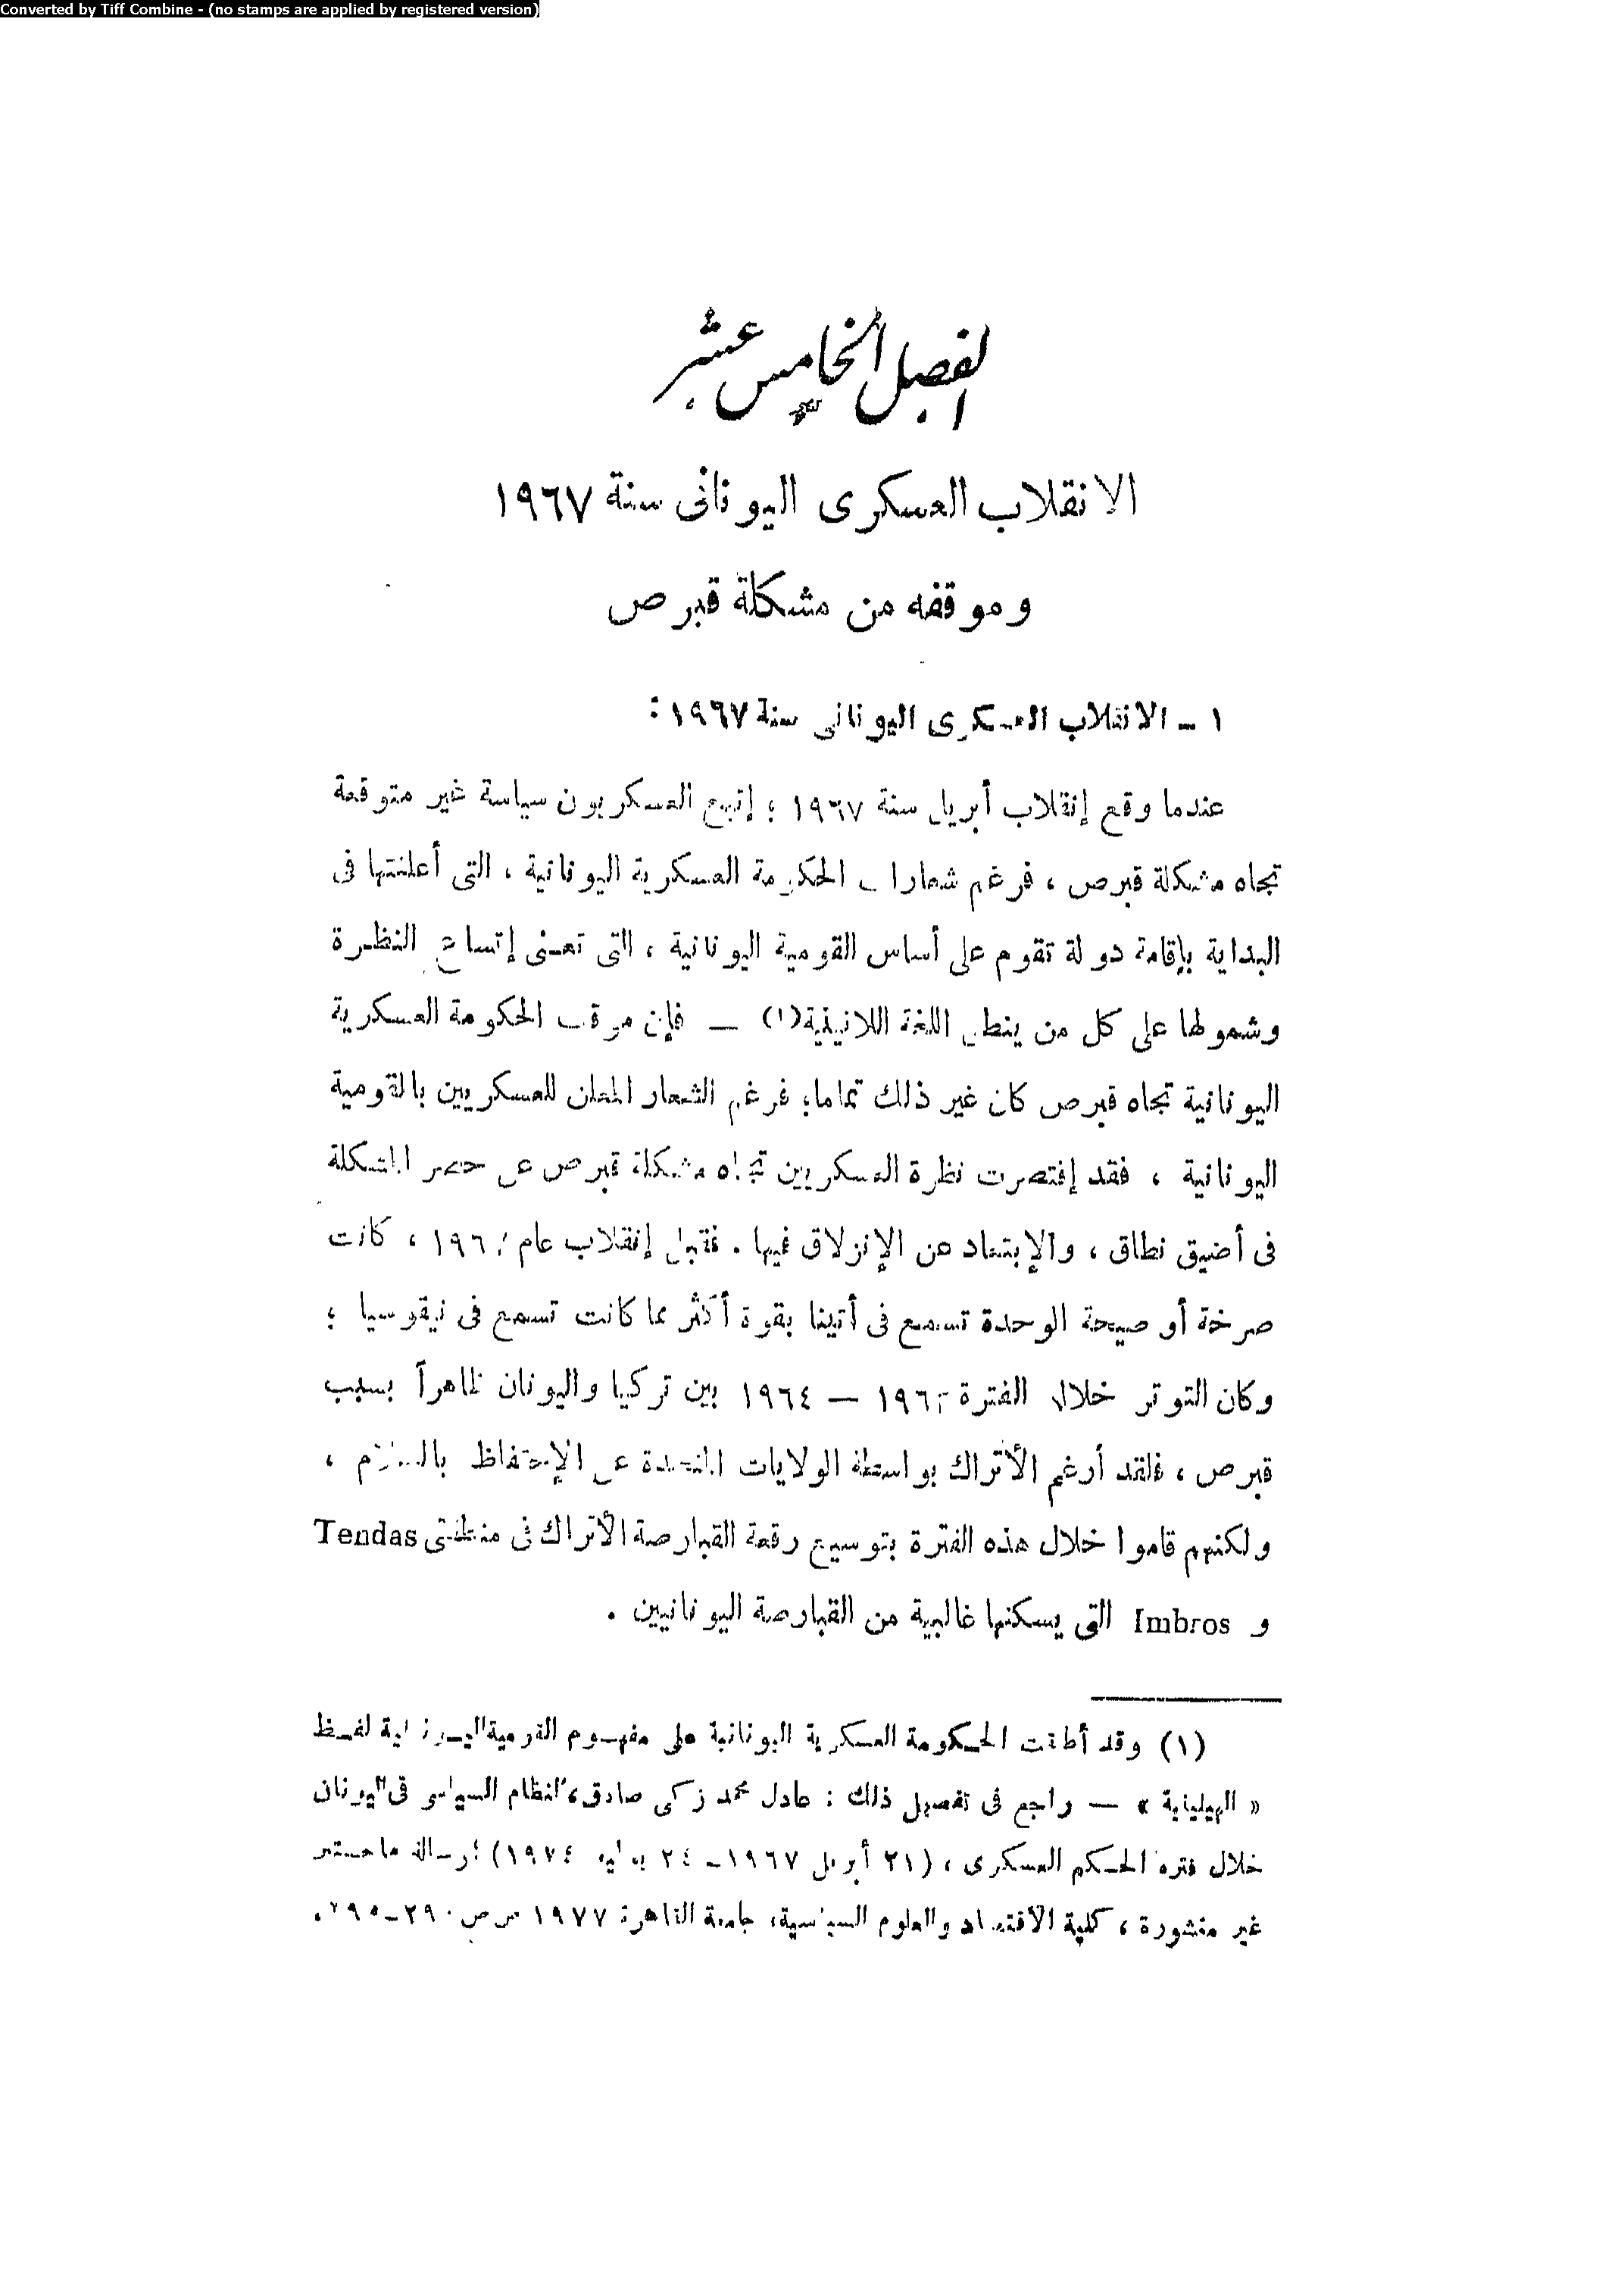 Converted by Tiff Combine - (no stamps are applied by registered version)
الفصل الخامس عشر
الانقلاب العسكرى اليونانى سنة ١٩٦٧
وموقفه من مشكلة قبرص
١ – الانقلاب العسكرى اليونانى سنة ١٩٦٧ :
عندما وقع إنقلاب أبريل سنة ١٩٦٧ ؛ إتبع العسكريون سياسة غير متوقعة
تجاه مشكلة قبرص ، فرغم شعارات الحكومة العسكرية اليونانية ، التى أعلنتها فى
البداية بإقامة دولة تقوم على أساس القومية اليونانية ، التى تعنى إتساع النظرة
وشمولها على كل من ينطق اللغة اللاتينية(١) – فإن موقف الحكومة العسكرية
اليونانية تجاه قبرص كان غير ذلك تماما؛ فرغم الشعار المعلن للعسكريين بالقومية
اليونانية ، فقد إقتصرت نظرة العسكريين تجاه مشكلة قبرص على حصر المشكلة
فى أضيق نطاق ، والإبتعاد عن الإنزلاق فيها . فقبل إنقلاب عام ، كانت
صرخة أو صيحة الوحدة تسمع فى أتينا بقوة أكثر مما كانت تسمع فى نيقوسيا ؛
وكان التوتر خلال الفترة – ١٩٦٤ بين تركيا واليونان ظاهراً بسبب
قبرص ، فلقد أرغم الأتراك بواسطة الولايات المتحدة على الإحتفاظ ،
ولكنهم قاموا خلال هذه الفترة بتوسيع رقعة القبارصة الأتراك فى منطقتى Tendas
و Imbros التى يسكنها غالبية من القبارصة اليونانيين .
(١) وقد أطلقت الحكومة العسكرية اليونانية على مفهوم القومية اليونانية لفظ
« الهيلينية » – راجع فى تفصيل ذلك : عادل محمد زكى صادق، النظام السياسى فى اليونان
خلال فترة الحكم العسكرى ، (٢١ أبريل ١٩٦٧ – ٢٤ يوليه ١٩٧٤) رسالة ماجستير
غير منشورة ، كلية الاقتصاد والعلوم السياسية، جامعة القاهرة ١٩٧٧ ص ص ٢٩٠ – ٢٩٥ .